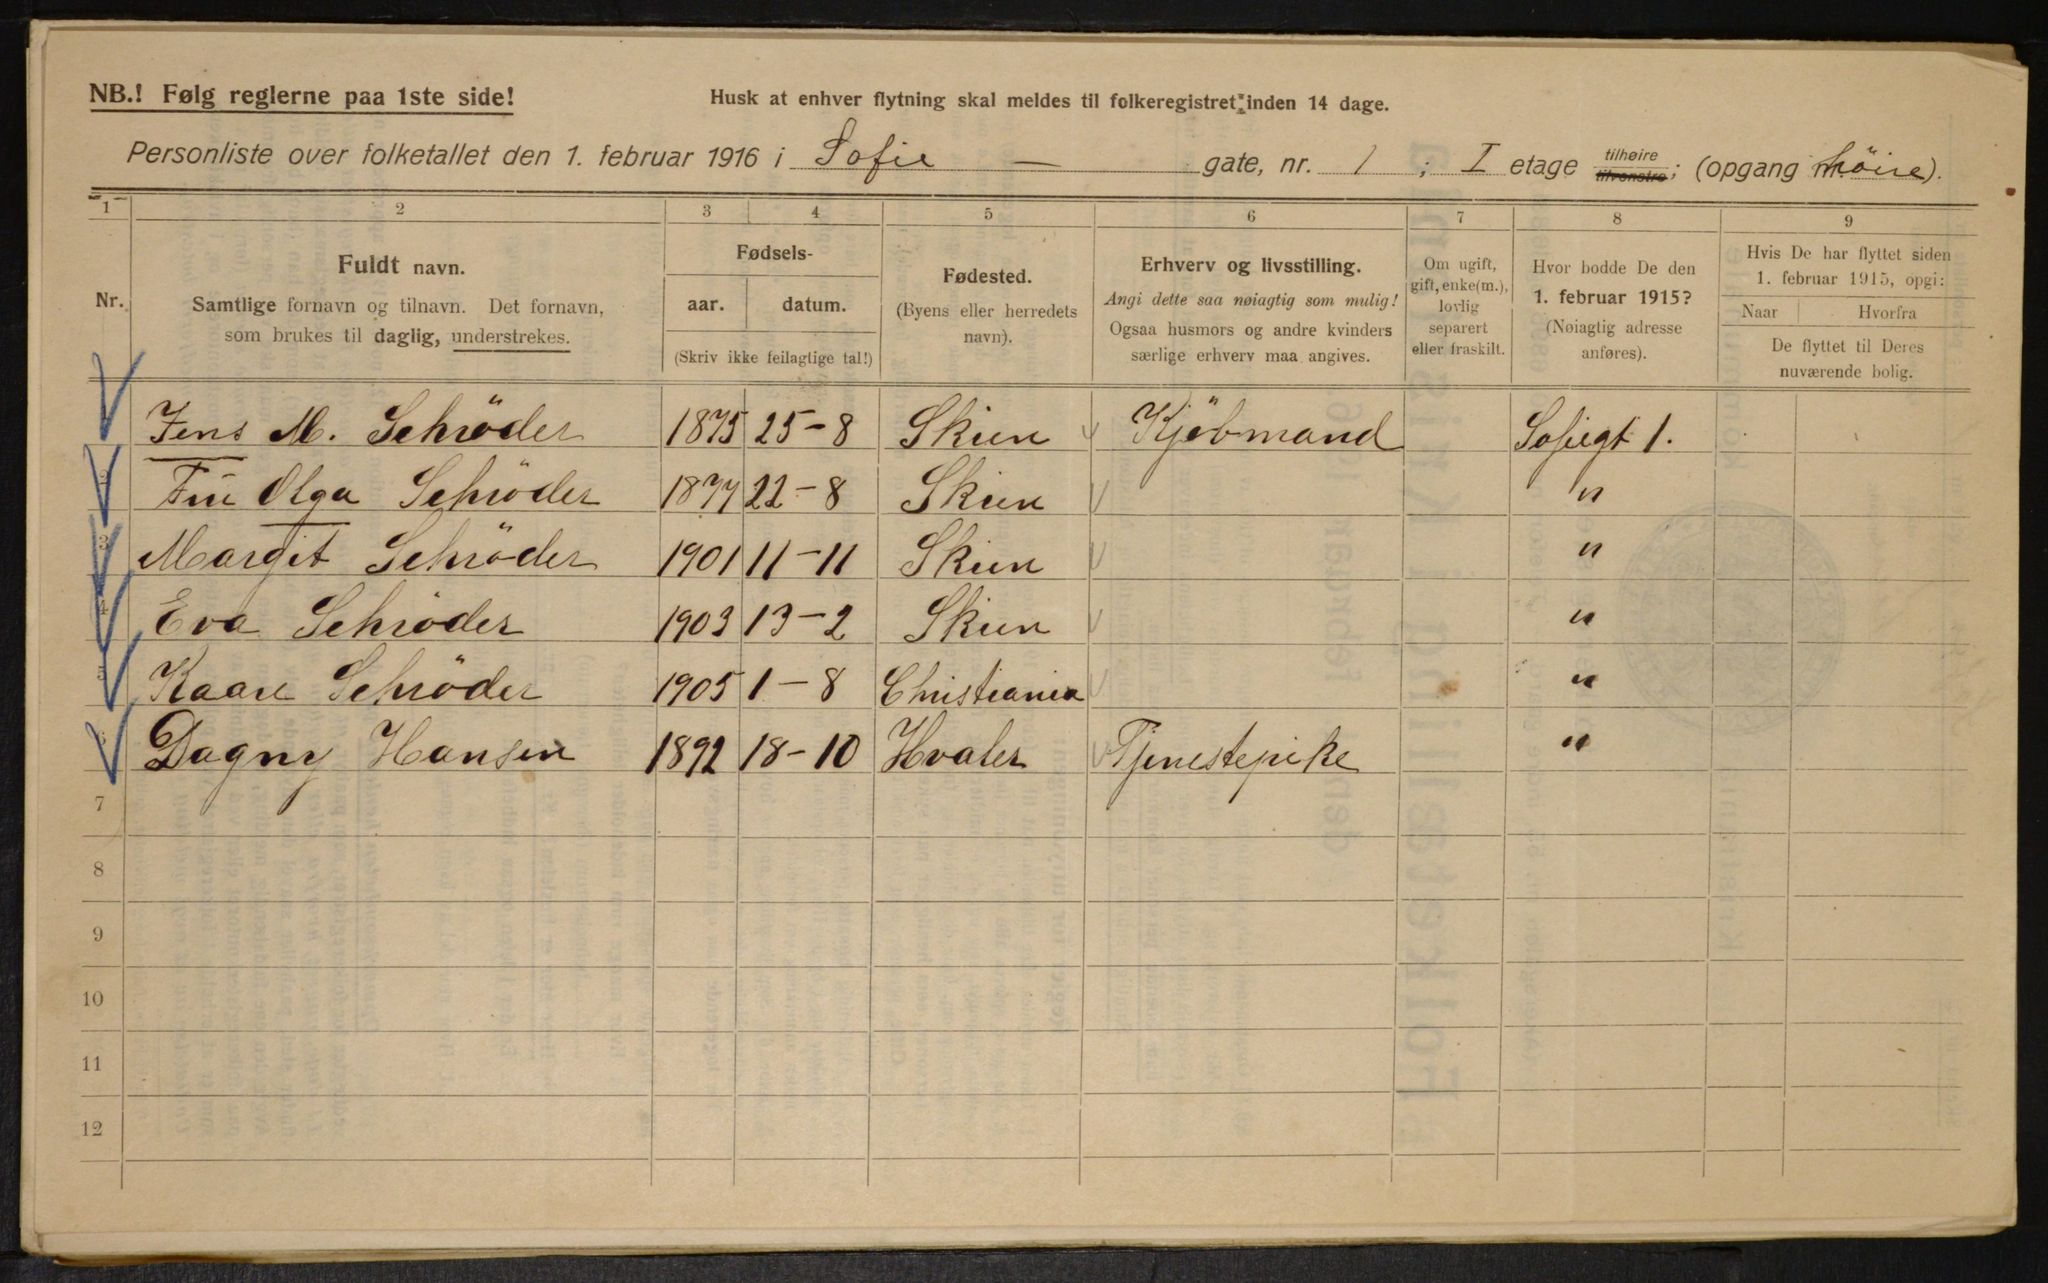 NB.! Følg reglerne paa 1ste side!
Husk at enhver flytning skal meldes til folkeregistret inden 14 dage.
Personliste over folketallet den 1. februar 1916 i Sofie — gate, nr. 1 ; I etage tilhøire tilvenstre; (opgang høire).
1 2 3 4 5 6 7 8 9
Nr.
Fuldt navn.
Samtlige fornavn og tilnavn. Det fornavn,
som brukes til daglig, understrekes.
Fødsels-
aar. datum.
(Skriv ikke feilagtige tal!)
Fødested.
(Byens eller herredets
navn).
Erhverv og livsstilling.
Angi dette saa nøiagtig som mulig!
Ogsaa husmors og andre kvinders
særlige erhverv maa angives.
Om ugift,
gift, enke(m.),
lovlig
separert
eller fraskilt.
Hvor bodde De den
1. februar 1915?
(Nøiagtig adresse
anføres).
Hvis De har flyttet siden
1. februar 1915, opgi:
Naar Hvorfra
De flyttet til Deres
nuværende bolig.
Jens M. Schröder 1875 25-8 Skien Kjöbmand Sofiegt 1.
2 Fru Olga Schröder 1877 22-8 Skien "
3 Margit Schröder 1901 11-11 Skien "
4 Eva Schröder 1903 13-2 Skien "
5 Kaare Schröder 1905 1-8 Christiania "
6 Dagny Hansen 1892 18-10 Hvaler Tjenestepike "
7
8
9
10
11
12